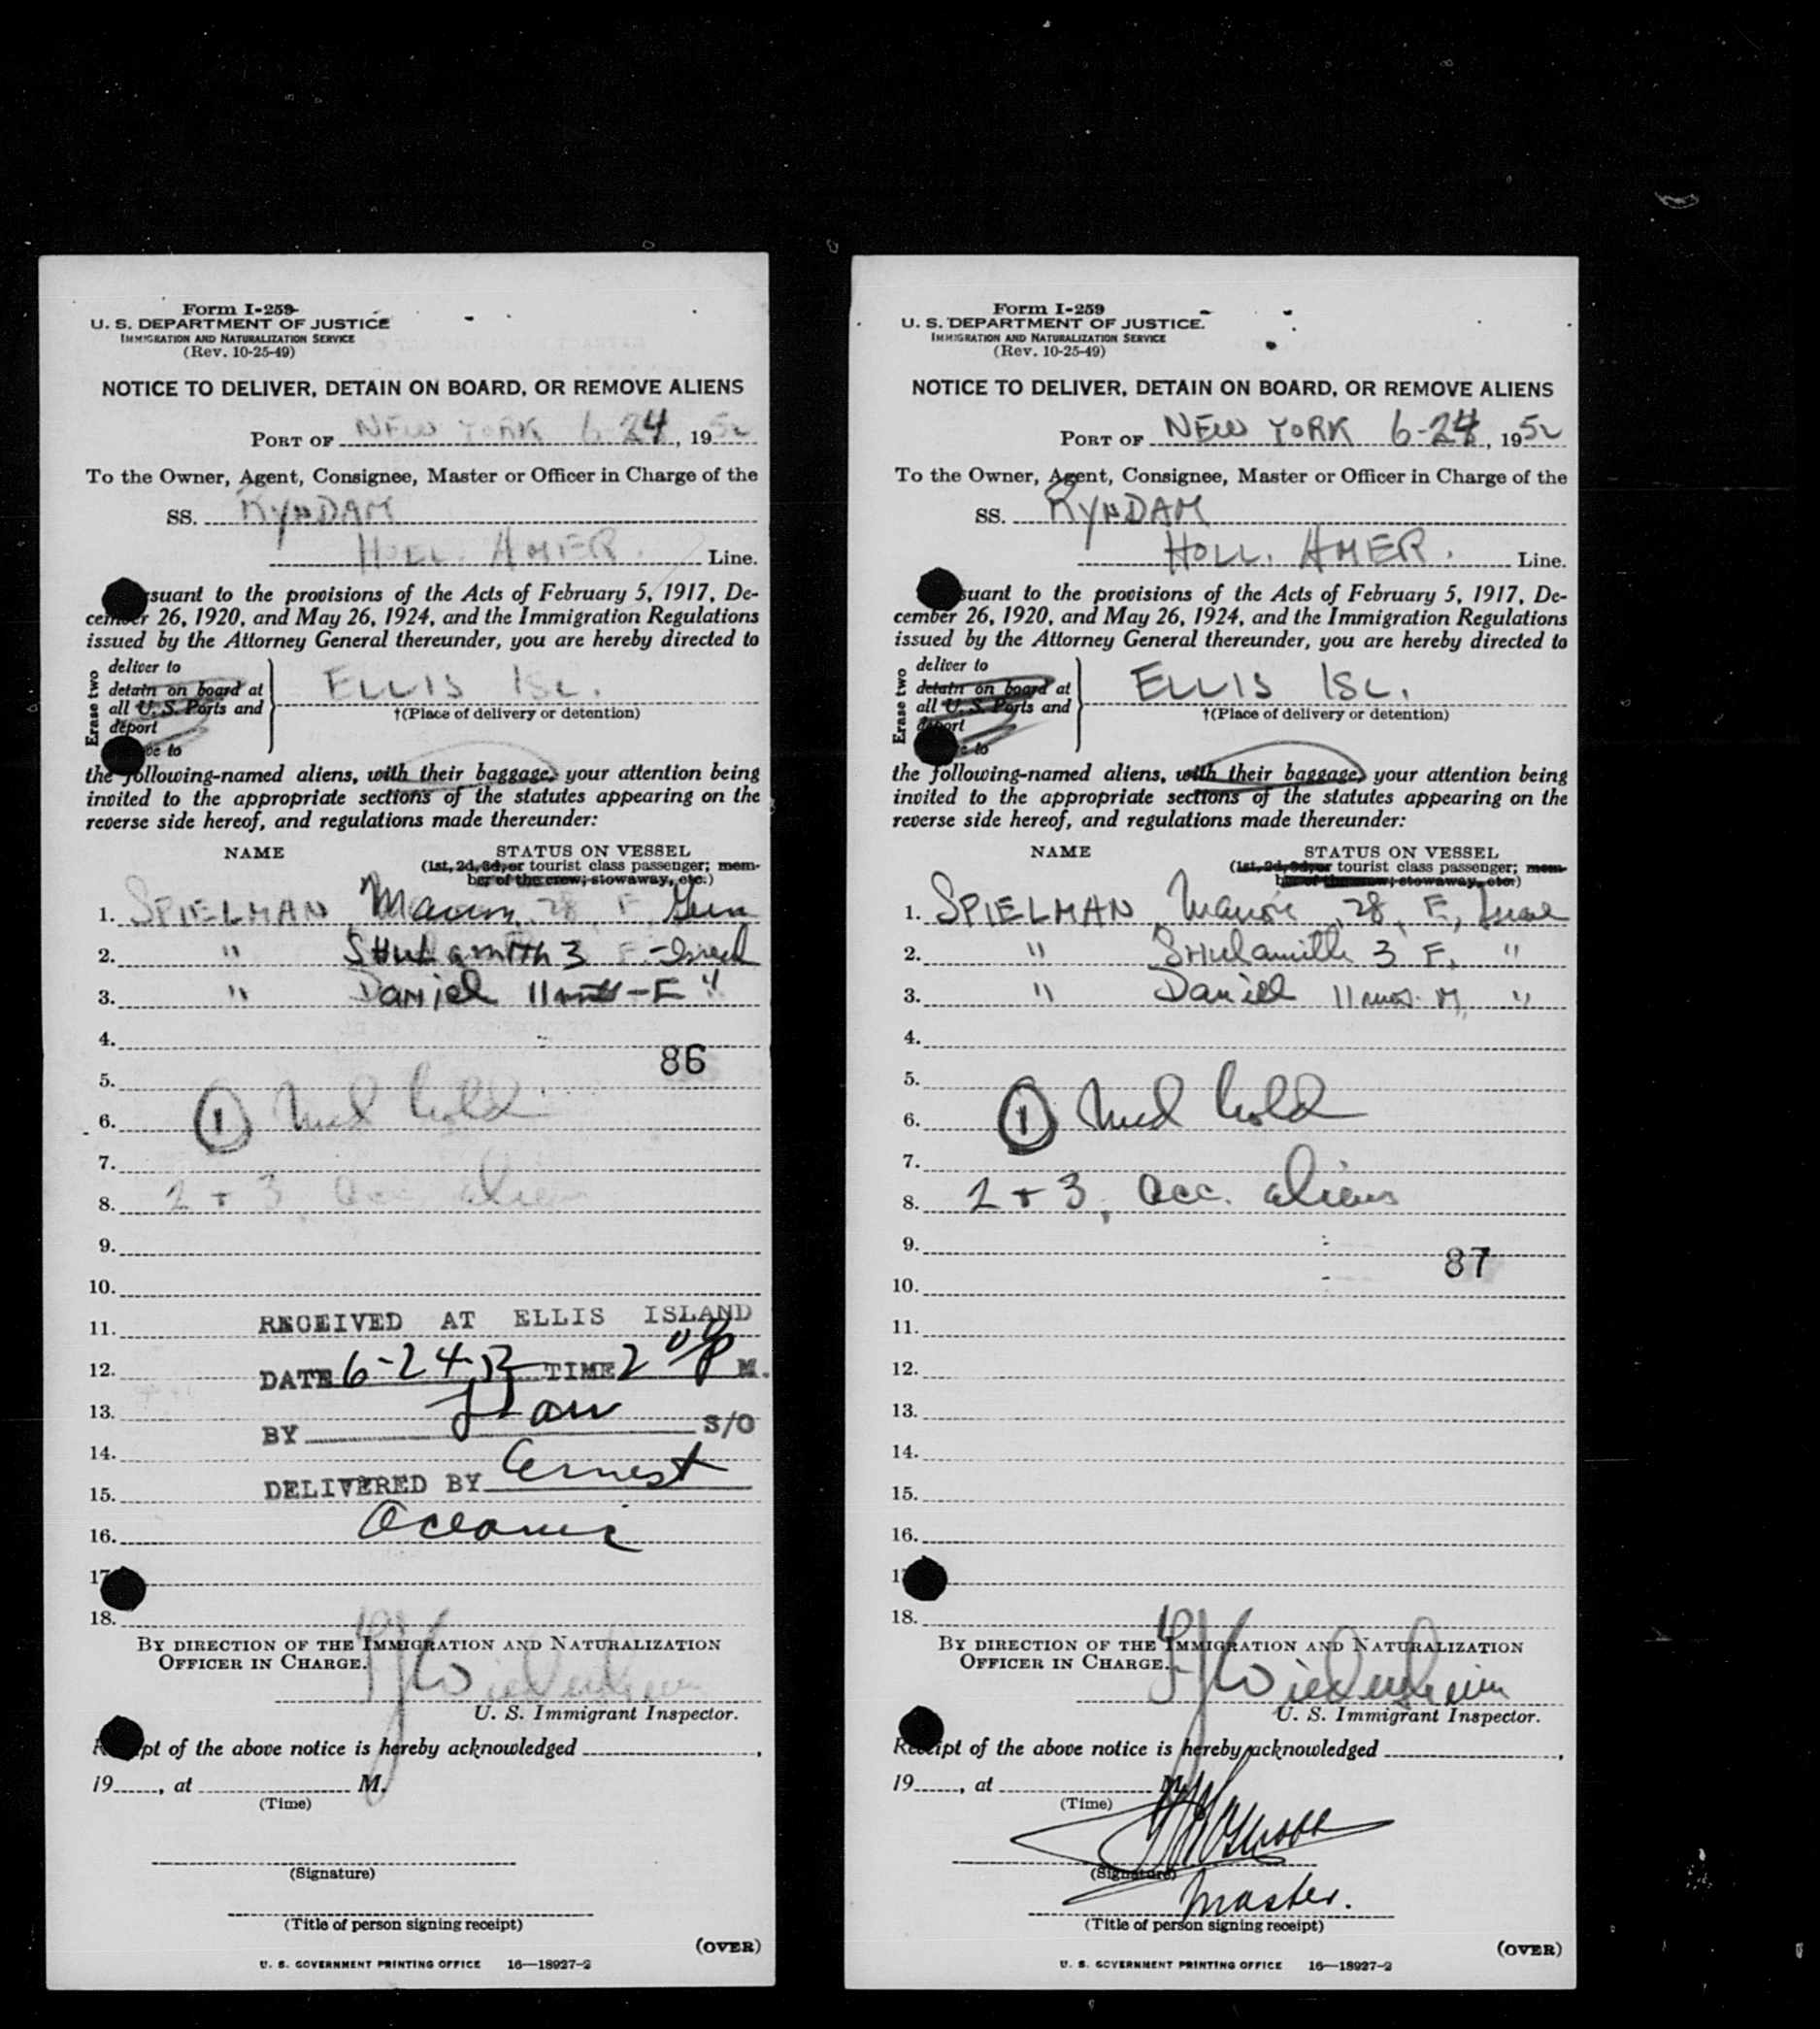 Form I-259
U. S. DEPARTMENT OF JUSTICE
IMMIGRATION AND NATURALIZATION SERVICE
(Rev. 10-25-49)
NOTICE TO DELIVER, DETAIN ON BOARD, OR REMOVE ALIENS
PORT OF NEW YORK 6-24, 1952
To the Owner, Agent, Consignee, Master or Officer in Charge of the
SS. RYNDAM
HOLL. AMER. Line.
suant to the provisions of the Acts of February 5, 1917, De-
cember 26, 1920, and May 26, 1924, and the Immigration Regulations
issued by the Attorney General thereunder, you are hereby directed to
Erase two
deliver to
detain on board at
all U. S. Ports and
deport
to
ELLIS ISL.
†(Place of delivery or detention)
the following-named aliens, with their baggage, your attention being
invited to the appropriate sections of the statutes appearing on the
reverse side hereof, and regulations made thereunder:
NAME STATUS ON VESSEL
(1st, 2d, 3d, or tourist class passenger; mem-
ber of the crew; stowaway, etc.)
1. SPIELMAN 28 F
2. " SHULAMITH 3 F - Israel
3. " DANIEL 11 - F "
4.
86
5.
6. (1) Med hold
7.
8. 2 + 3, acc. aliens
9.
10.
11. RECEIVED AT ELLIS ISLAND
12. DATE 6-24-52 TIME 2 P M.
13.
BY S/O
14.
15. DELIVERED BY Ernest
16. Oceanic
17
18.
BY DIRECTION OF THE IMMIGRATION AND NATURALIZATION
OFFICER IN CHARGE.
U. S. Immigrant Inspector.
Receipt of the above notice is hereby acknowledged ,
19 , at M.
(Time)
(Signature)
(Title of person signing receipt)
(OVER)
U. S. GOVERNMENT PRINTING OFFICE 16—18927-2
Form I-259
U. S. DEPARTMENT OF JUSTICE
IMMIGRATION AND NATURALIZATION SERVICE
(Rev. 10-25-49)
NOTICE TO DELIVER, DETAIN ON BOARD, OR REMOVE ALIENS
PORT OF NEW YORK 6-24, 1952
To the Owner, Agent, Consignee, Master or Officer in Charge of the
SS. RYNDAM
HOLL. AMER. Line.
suant to the provisions of the Acts of February 5, 1917, De-
cember 26, 1920, and May 26, 1924, and the Immigration Regulations
issued by the Attorney General thereunder, you are hereby directed to
Erase two
deliver to
detain on board at
all U. S. Ports and
deport
to
ELLIS ISL.
†(Place of delivery or detention)
the following-named aliens, with their baggage, your attention being
invited to the appropriate sections of the statutes appearing on the
reverse side hereof, and regulations made thereunder:
NAME STATUS ON VESSEL
(1st, 2d, 3d, or tourist class passenger; mem-
ber of the crew; stowaway, etc.)
1. SPIELMAN , 28, F,
2. " SHulamith 3 F. "
3. " Daniel 11 mos. M, "
4.
5.
6. (1) Med hold
7.
8. 2 + 3, acc. aliens
9.
87
10.
11.
12.
13.
14.
15.
16.
17
18.
BY DIRECTION OF THE IMMIGRATION AND NATURALIZATION
OFFICER IN CHARGE.
U. S. Immigrant Inspector.
Receipt of the above notice is hereby acknowledged ,
19 , at M.
(Time)
(Signature)
Master.
(Title of person signing receipt)
(OVER)
U. S. GOVERNMENT PRINTING OFFICE 16—18927-2